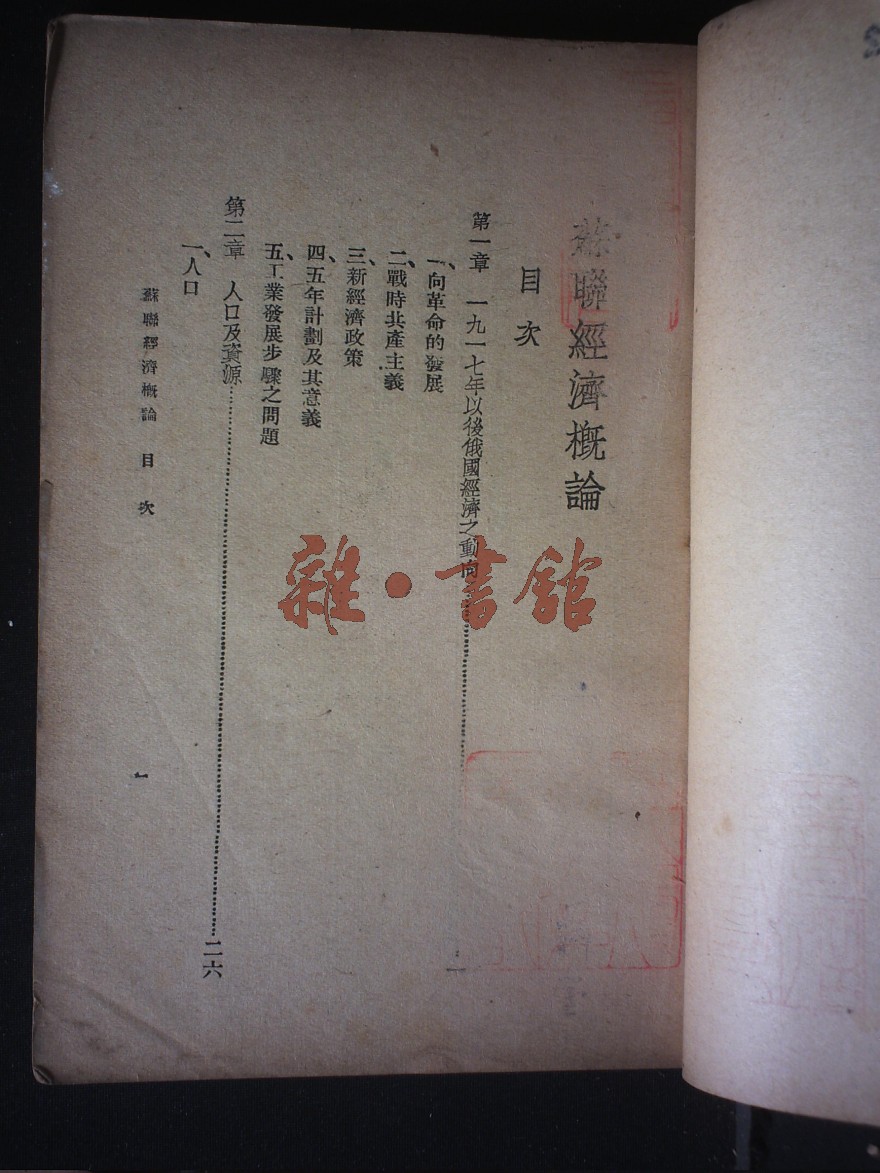 蘇聯經濟概論
目次
第一章 一九一七年以後俄國經濟之動向 一
一、向革命的發展
二、戰時共產主義
三、新經濟政策
四、五年計劃及其意義
五、工業發展步驟之問題
第二章 人口及資源 二六
一、人口
蘇聯經濟概論 目次
一
雜·書舘